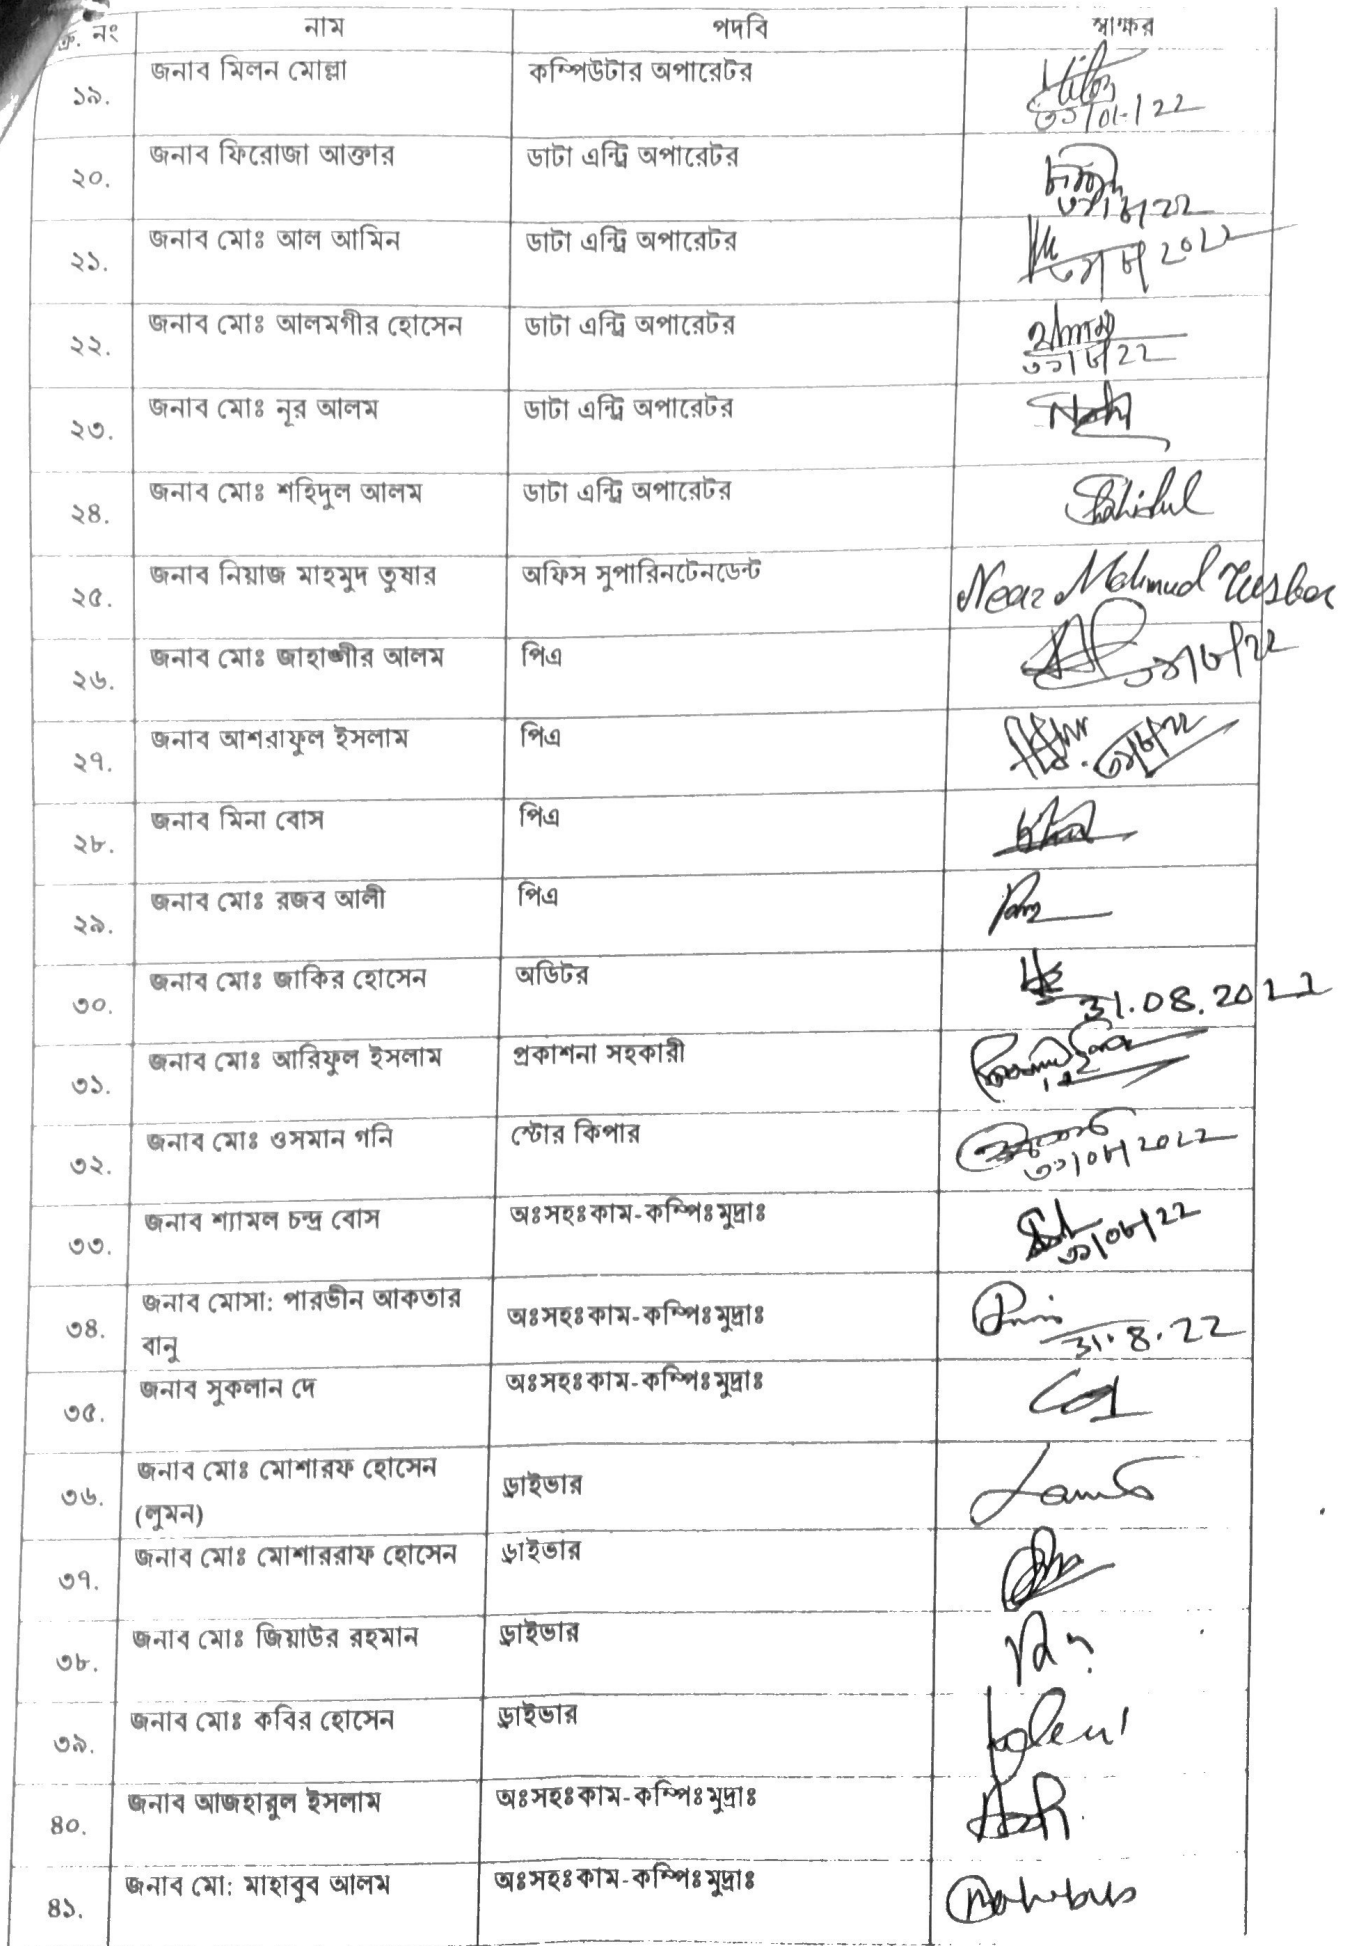 ক্র. নং নাম পদবি স্বাক্ষর
১৯. জনাব মিলন মোল্লা কম্পিউটার অপারেটর
২০. জনাব ফিরোজা আক্তার ডাটা এন্ট্রি অপারেটর
২১. জনাব মোঃ আল আমিন ডাটা এন্ট্রি অপারেটর
২২. জনাব মোঃ আলমগীর হোসেন ডাটা এন্ট্রি অপারেটর
২৩. জনাব মোঃ নূর আলম ডাটা এন্ট্রি অপারেটর
২৪. জনাব মোঃ শহিদুল আলম ডাটা এন্ট্রি অপারেটর Shahidul
২৫. জনাব নিয়াজ মাহমুদ তুষার অফিস সুপারিনটেনডেন্ট Neaz Mahmud Tushar
২৬. জনাব মোঃ জাহাঙ্গীর আলম পিএ
২৭. জনাব আশরাফুল ইসলাম পিএ
২৮. জনাব মিনা বোস পিএ
২৯. জনাব মোঃ রজব আলী পিএ
৩০. জনাব মোঃ জাকির হোসেন অডিটর 31.08.2022
৩১. জনাব মোঃ আরিফুল ইসলাম প্রকাশনা সহকারী
৩২. জনাব মোঃ ওসমান গনি স্টোর কিপার ৩১/০৮/2022
৩৩. জনাব শ্যামল চন্দ্র বোস অঃসহঃকাম-কম্পিঃমুদ্রাঃ ৩১/০৮/22
৩৪. জনাব মোসা: পারভীন আকতার
বানু অঃসহঃকাম-কম্পিঃমুদ্রাঃ 31.8.22
৩৫. জনাব সুকলান দে অঃসহঃকাম-কম্পিঃমুদ্রাঃ
৩৬. জনাব মোঃ মোশারফ হোসেন
(লুমন) ড্রাইভার
৩৭. জনাব মোঃ মোশাররাফ হোসেন ড্রাইভার
৩৮. জনাব মোঃ জিয়াউর রহমান ড্রাইভার
৩৯. জনাব মোঃ কবির হোসেন ড্রাইভার
৪০. জনাব আজহারুল ইসলাম অঃসহঃকাম-কম্পিঃমুদ্রাঃ
৪১. জনাব মো: মাহাবুব আলম অঃসহঃকাম-কম্পিঃমুদ্রাঃ